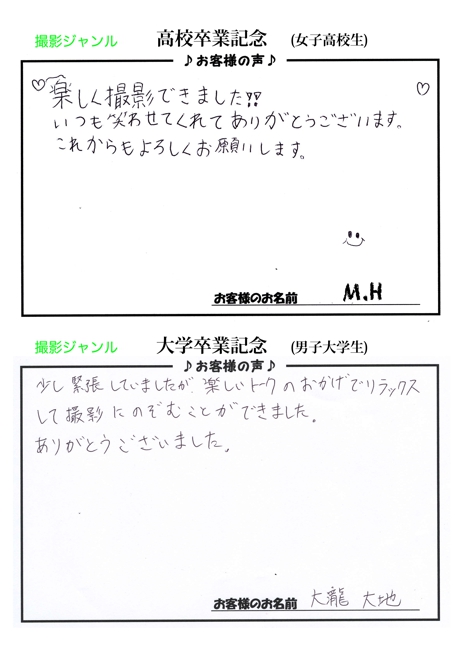 撮影ジャンル 高校卒業記念 (女子高校生)
♪お客様の声♪
楽しく撮影できました!!
いつも笑わせてくれてありがとうございます。
これからもよろしくお願いします。
お客様のお名前 M.H
撮影ジャンル 大学卒業記念 (男子大学生)
♪お客様の声♪
少し緊張していましたが、楽しいトークのおかげでリラックス
して撮影にのぞむことができました。
ありがとうございました。
お客様のお名前 大瀧 大地